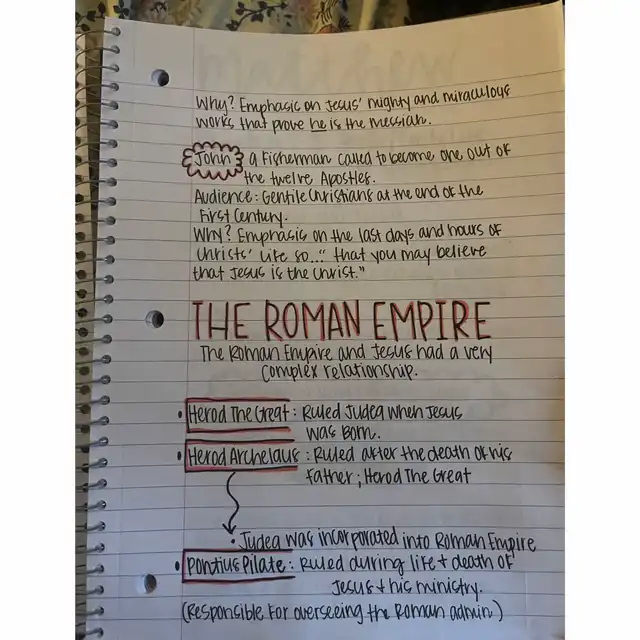 Why? Emphasic on Jesus' mighty and miraculous
works that prove he is the messiah.
John: a Fisherman called to become one out of
the twelve Apostles.
Audience: Gentile Christians at the end of the
First Century.
Why? Emphasis on the last days and hours of
Christs' Life so..." that you may believe
that Jesus is the Christ."
THE ROMAN EMPIRE
The Roman Empire and Jesus had a very
complex relationship.
• Herod The Great: Ruled Judea when Jesus
was Born.
• Herod Archelaus: Ruled after the death of his
Father; Herod The Great
• Judea was incorporated into Roman Empire
• Pontius Pilate: Ruled during life + death of
Jesus + his ministry.
(Responsible For overseeing the Roman admin.)